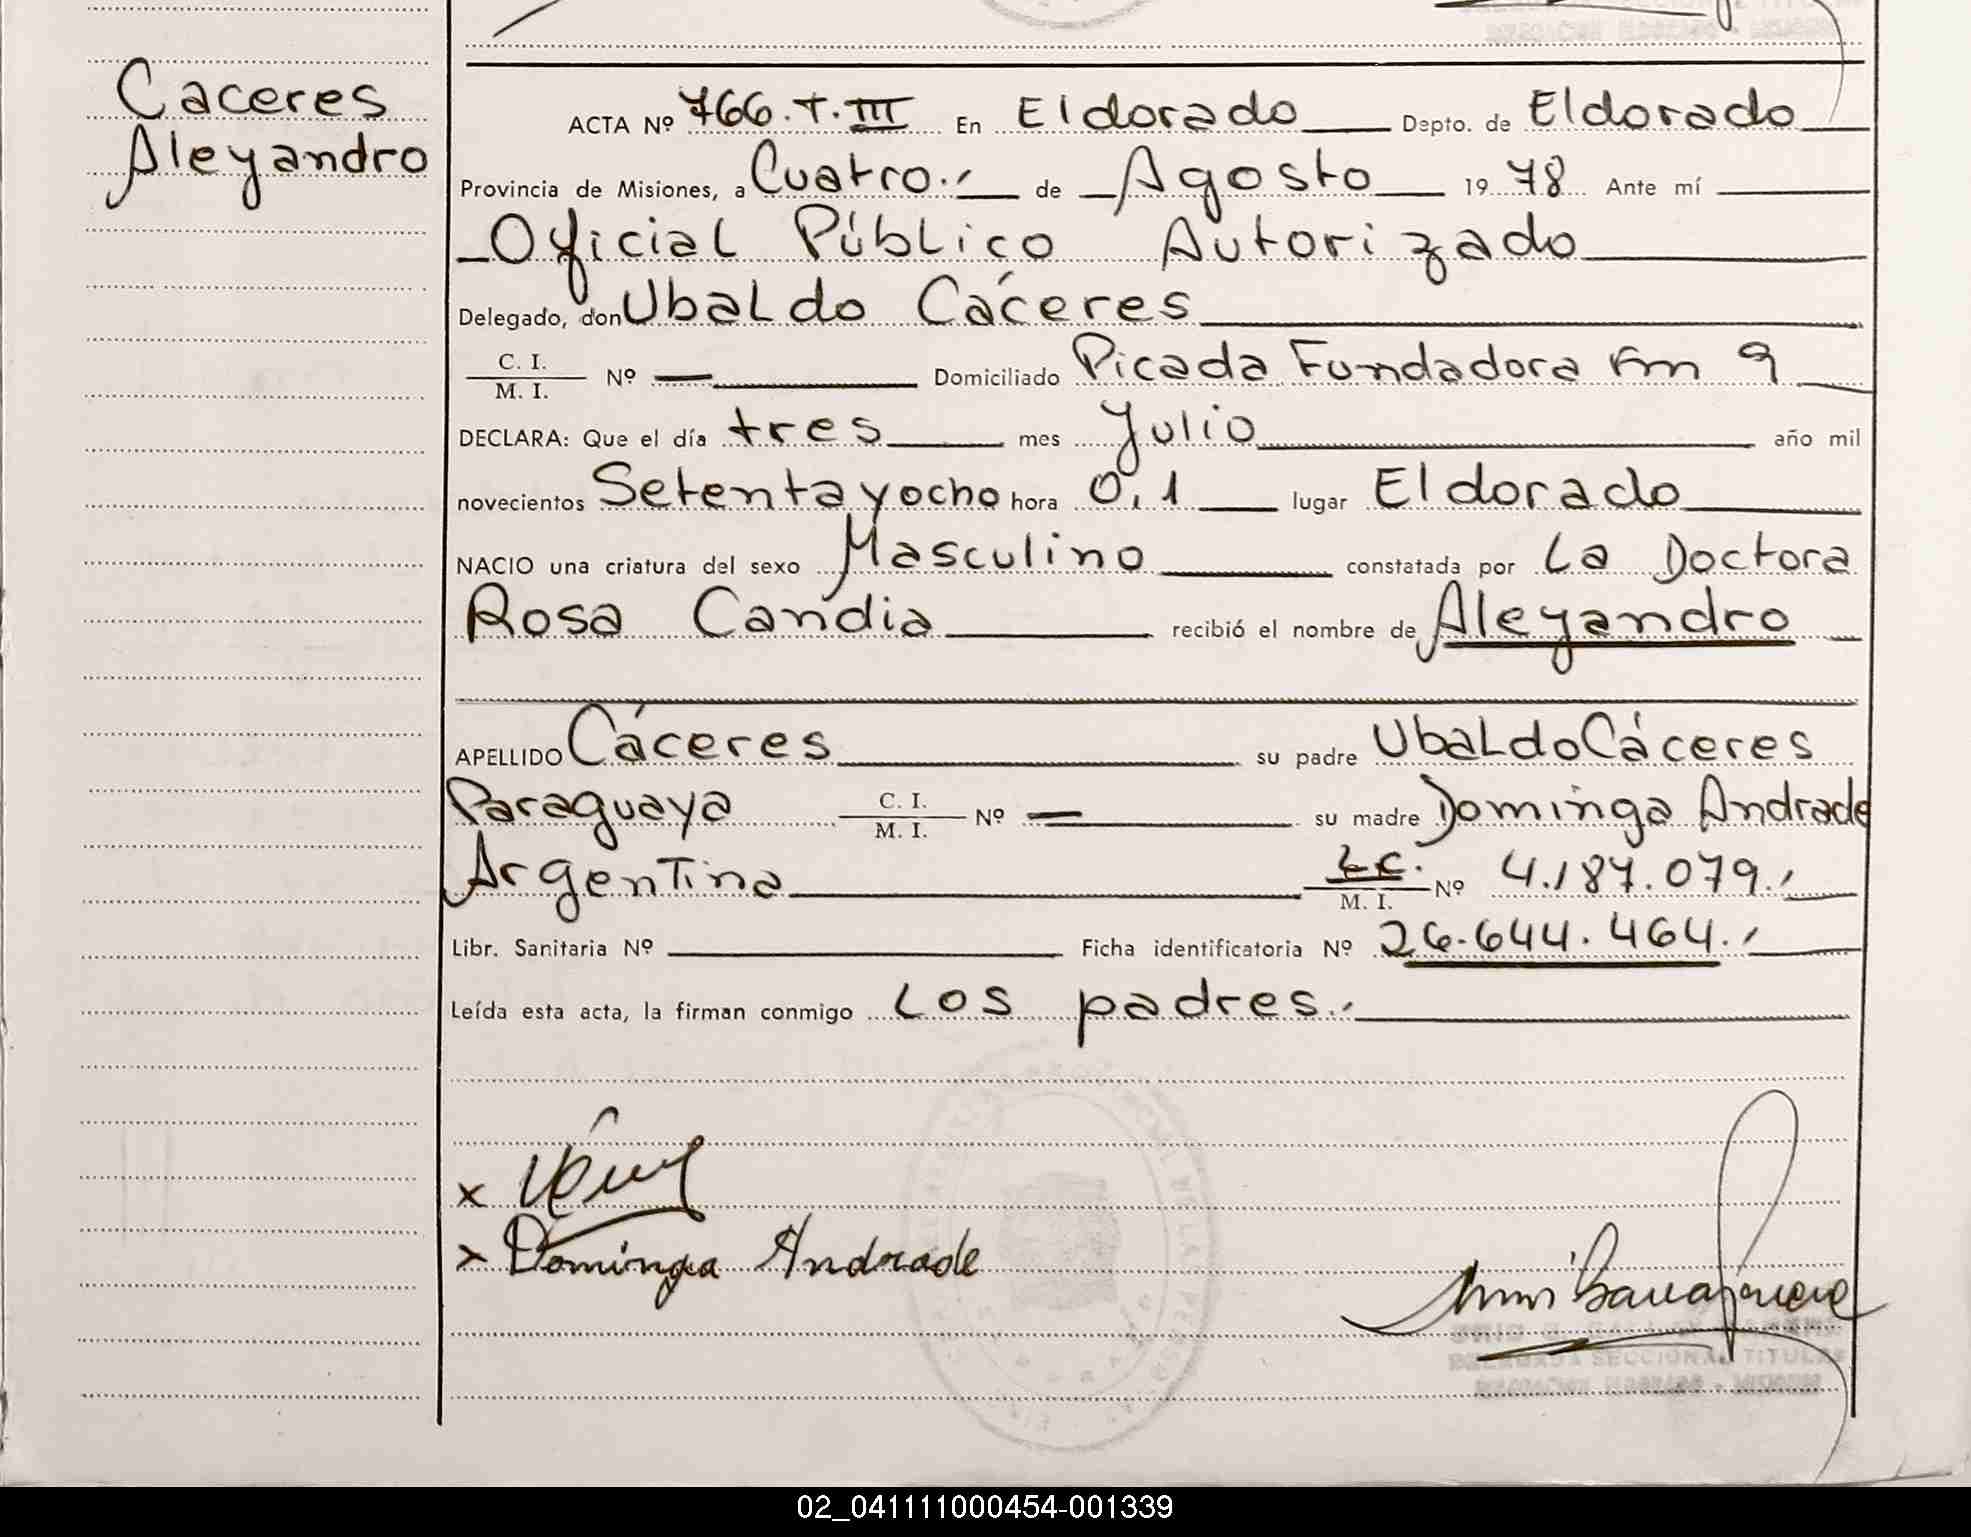 Caceres
Aleyandro
ACTA Nº 766.T.III En Eldorado Depto. de Eldorado
Provincia de Misiones, a Cuatro.- de Agosto 1978 Ante mí
Oficial Público Autorizado
Delegado, don Ubaldo Cáceres
C. I.
M. I. Nº — Domiciliado Picada Fundadora Km 9
DECLARA: Que el día tres mes Julio año mil
novecientos Setenta y ocho hora 0,1 lugar Eldorado
NACIO una criatura del sexo Masculino constatada por La Doctora
Rosa Candia recibió el nombre de Aleyandro
APELLIDO Cáceres su padre Ubaldo Cáceres
Paraguaya C. I. M. I. Nº — su madre Dominga Andrade
Argentina L.C. M. I. Nº 4.187.079.-
Libr. Sanitaria Nº Ficha identificatoria Nº 26.644.464.-
Leída esta acta, la firman conmigo Los padres.-
x
x Dominga Andrade
DELEGADA SECCIONAL TITULAR
02_041111000454-001339